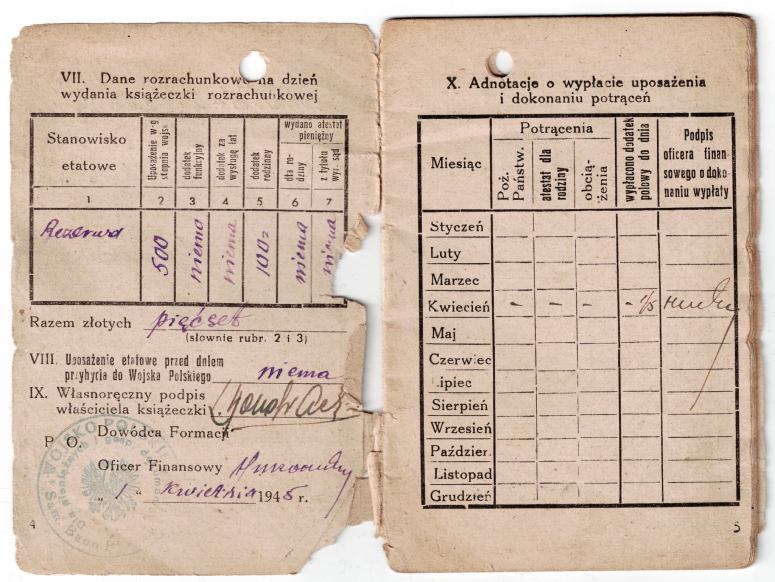 VII. Dane rozrachunkowe na dzień
wydania książeczki rozrachunkowej
Stanowisko
etatowe
Uposażenie w-g
stopnia wojsk
dodatek
funkcyjny
dodatek za
wysługę lat
dodatek
rodzinny
wydano atestat
pieniężny
dla ro-
dziny
z tytułu
wyr. sąd
1 2 3 4 5 6 7
Rezerwa 500 niema niema 100= niema niema
Razem złotych pięćset
(słownie rubr. 2 i 3)
VIII. Uposażenie etatowe przed dniem
przybycia do Wojska Polskiego niema
IX. Własnoręczny podpis
właściciela książeczki
Dowódca Formacji
P. O.
Oficer Finansowy
„ 1 “ kwietnia 1945 r.
WOJSKO POLSKIE
4
X. Adnotacje o wypłacie uposażenia
i dokonaniu potrąceń
Miesiąc
Potrącenia
Poż.
Państw.
atestat dla
rodziny
obcią-
żenia
wypłacono dodatek
polowy do dnia
Podpis
oficera finan-
sowego o doko-
naniu wypłaty
Styczeń
Luty
Marzec
Kwiecień - - - - 1/5
Maj
Czerwiec
Lipiec
Sierpień
Wrzesień
Paździer.
Listopad
Grudzień
5